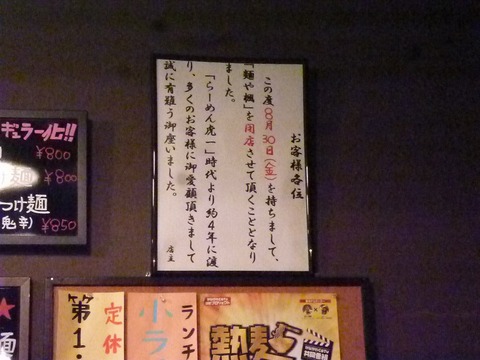 お客様各位
この度8月30日(金)を持ちまして、
「麺や楓」を閉店させて頂くこととなり
ました。
「らーめん虎一」時代より約4年に渡
り、多くのお客様に御愛顧頂きまして
誠に有難う御座いました。
店主
ギュラー化!!
¥800
¥800
つけ麺
鬼辛)
¥850
麺
ランチ
ボラ
定休
第1.